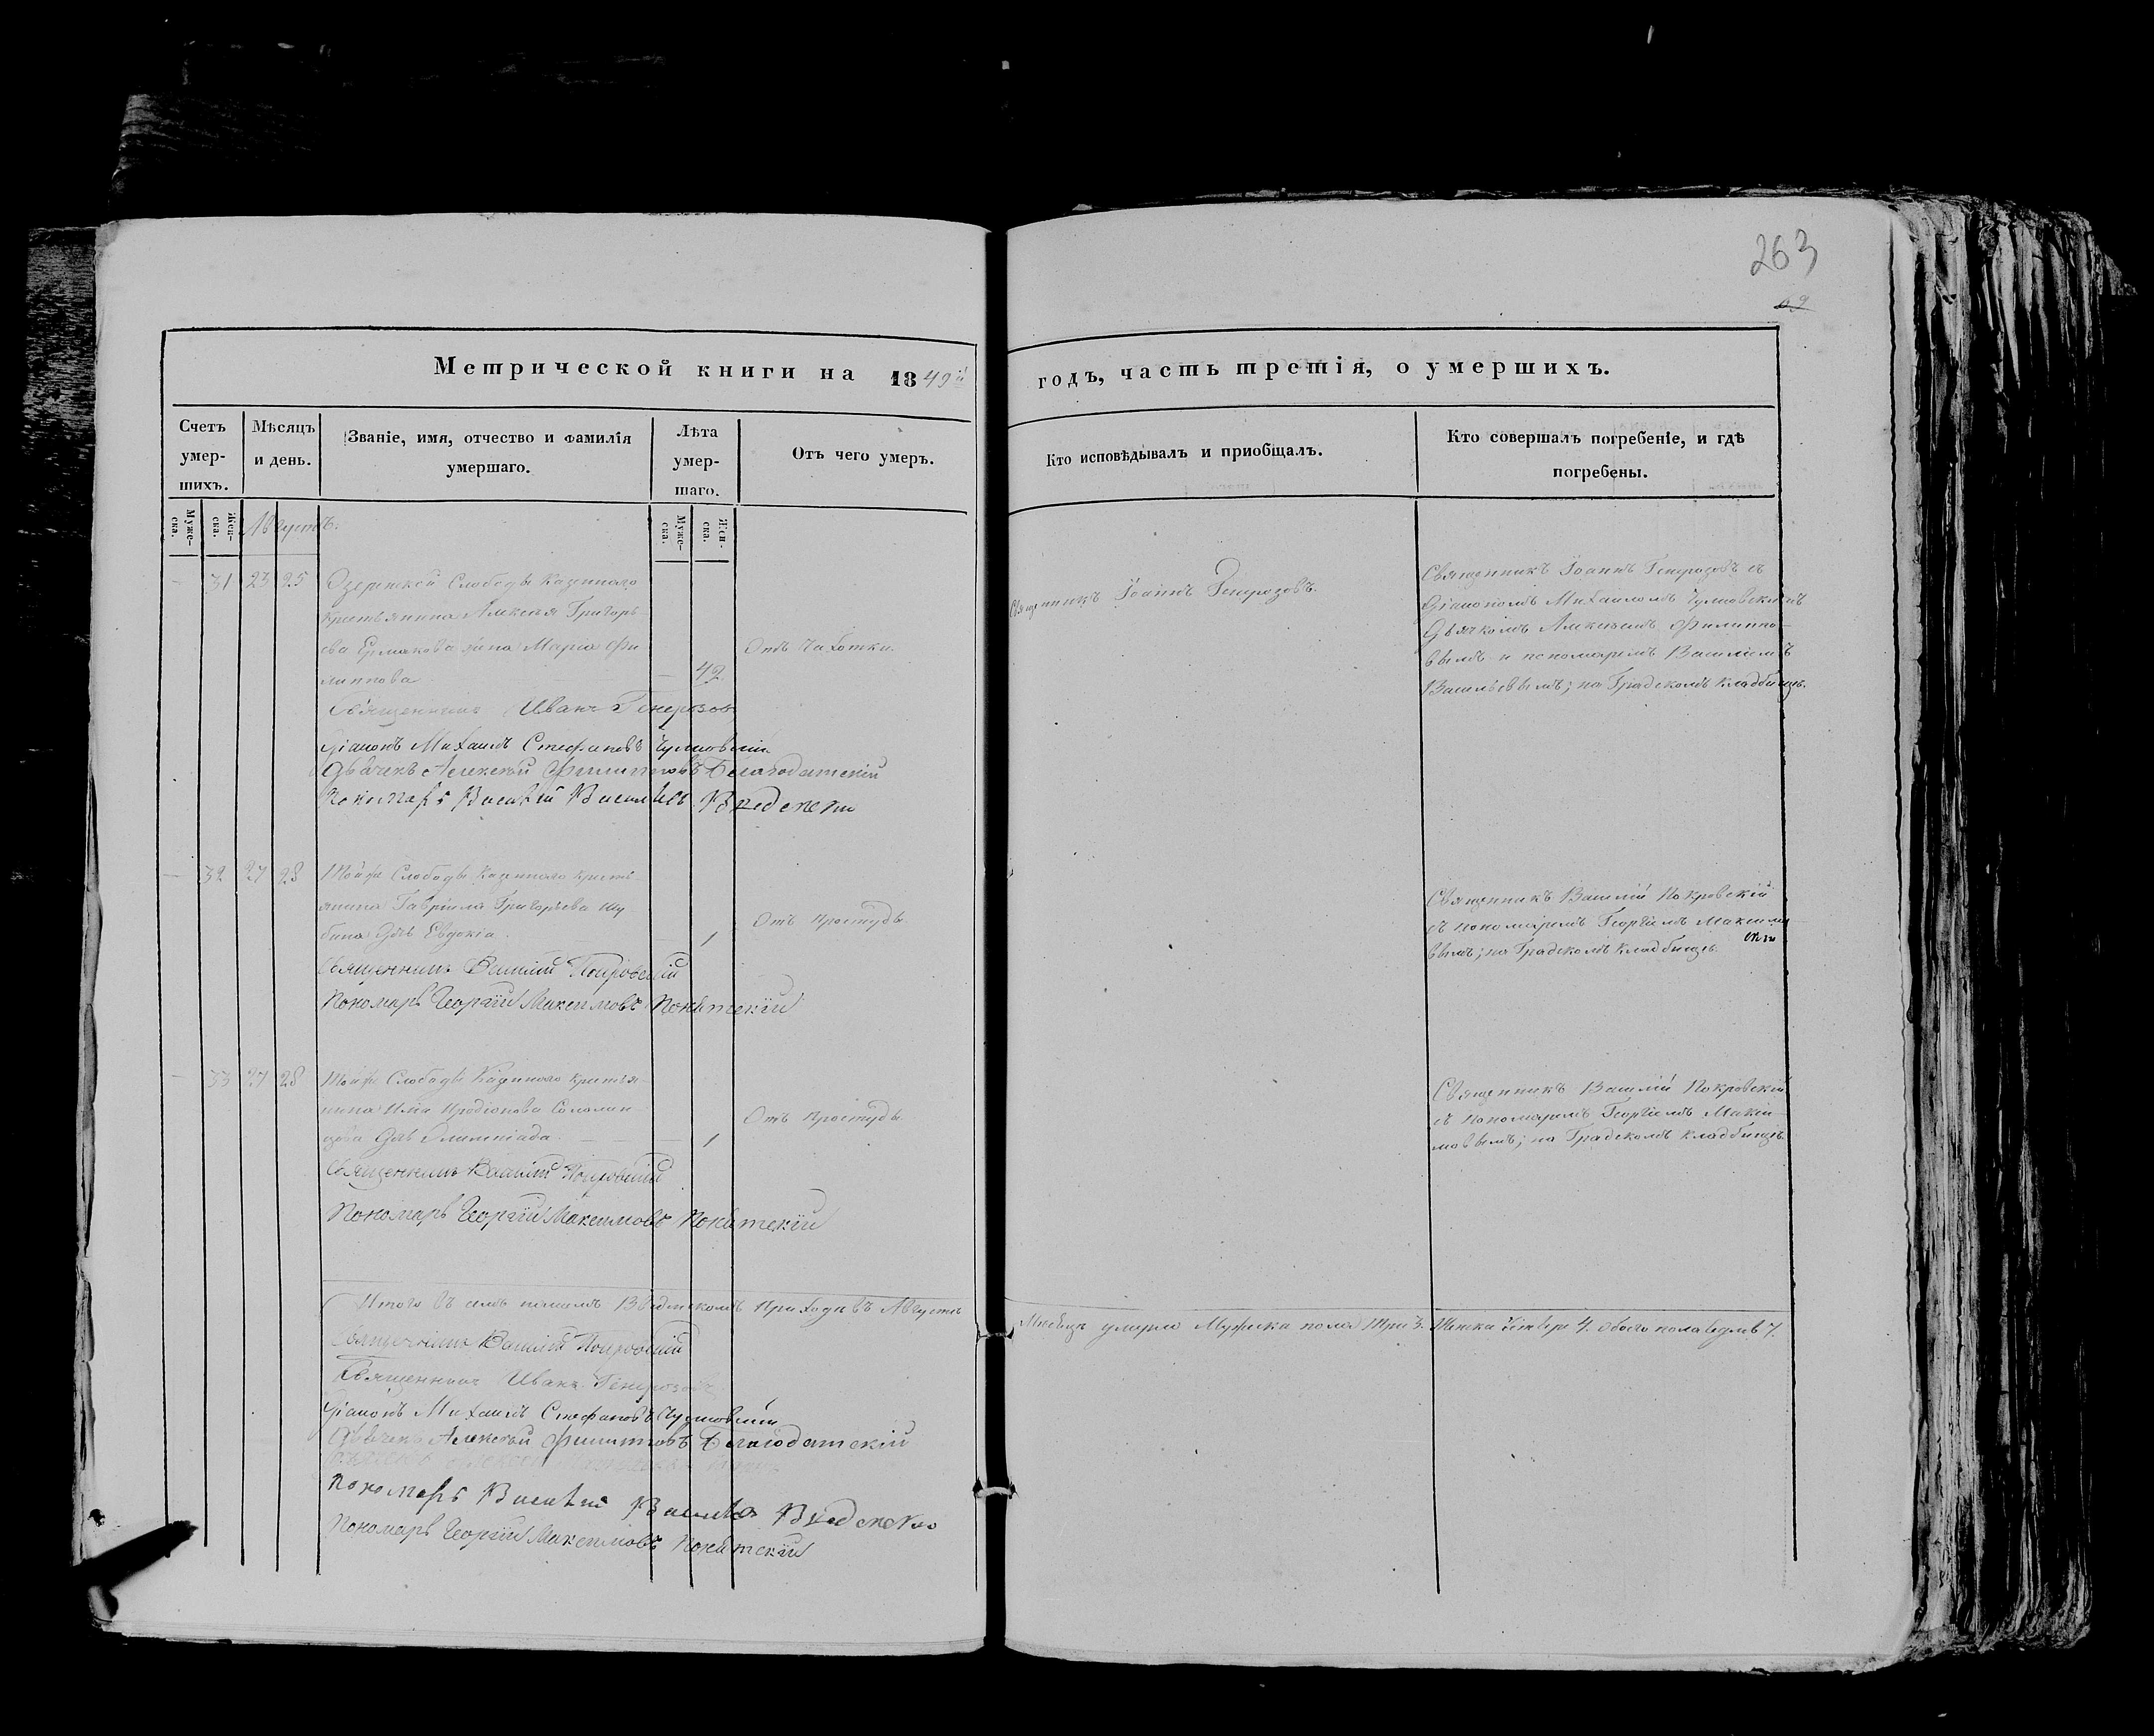 263
99
Метрической книги на 1849й
годъ, часть третія, о умершихъ.
Счетъ умер-шихъ.
Мѣсяцъ и день.
Званіе, имя, отчество и фамилія умершаго.
Лѣта умер-шаго.
Отъ чего умеръ.
Кто исповѣдывалъ и пріобщалъ.
Кто совершалъ погребеніе, и гдѣ погребены.
Муже-ска.
Жен-ска.
Муже-ска.
Жен-ска.
Августъ.
— 31 23 25
Озерской Слободы Казеннаго
крестьянина Алексѣя Григорь
ева Ермакова жена Марія Фи
липпова — 42
Отъ Чахотки.
Священникъ Іоаннъ Генерозовъ.
Священникъ Іоаннъ Генерозовъ съ
Діакономъ Михаиломъ
Дьячкомъ Алексѣемъ Филиппо
вымъ и пономаремъ Василіемъ
Васильевымъ; на Градскомъ кладбищѣ.
Священникъ Иванъ Генерозов
Діаконъ Михаилъ Стефановъ
Дьячекъ Алексѣй Филипповъ Благодатскій
Пономарь Василій Васильевъ
— 32 27 28
Той же Слободы Казеннаго кресть
янина Гавріила Григорьева Шу
бина дочь Евдокія — 1
Отъ простуды.
Священникъ Василій Покровскій
съ пономаремъ Георгіемъ Максимо
вымъ; на Градскомъ кладбищѣ.
Священникъ Василій Покровскій
Пономарь Георгій Максимовъ
— 33 27 28
Той же Слободы Казеннаго крестья
нина Иродіонова Соломан
цова дочь Олимпіада — 1
Отъ простуды
Священникъ Василій Покровскій
съ пономаремъ Георгіемъ Макси
мовымъ; на Градскомъ кладбищѣ.
Священникъ Василій Покровскій
Пономарь Георгій Максимовъ
Итого въ семъ нашемъ приходѣ въ Августѣ
Мѣсяцѣ умерло Мужеска пола три 3. Женска четыре 4. обоего пола 7.
Священникъ Василій Покровскій
Священникъ Иванъ Генерозовъ
Діаконъ Михаилъ Стефановъ
Дьячекъ Алексѣй Филипповъ Благодатскій
Пономарь Василій
Пономарь Георгій Максимовъ